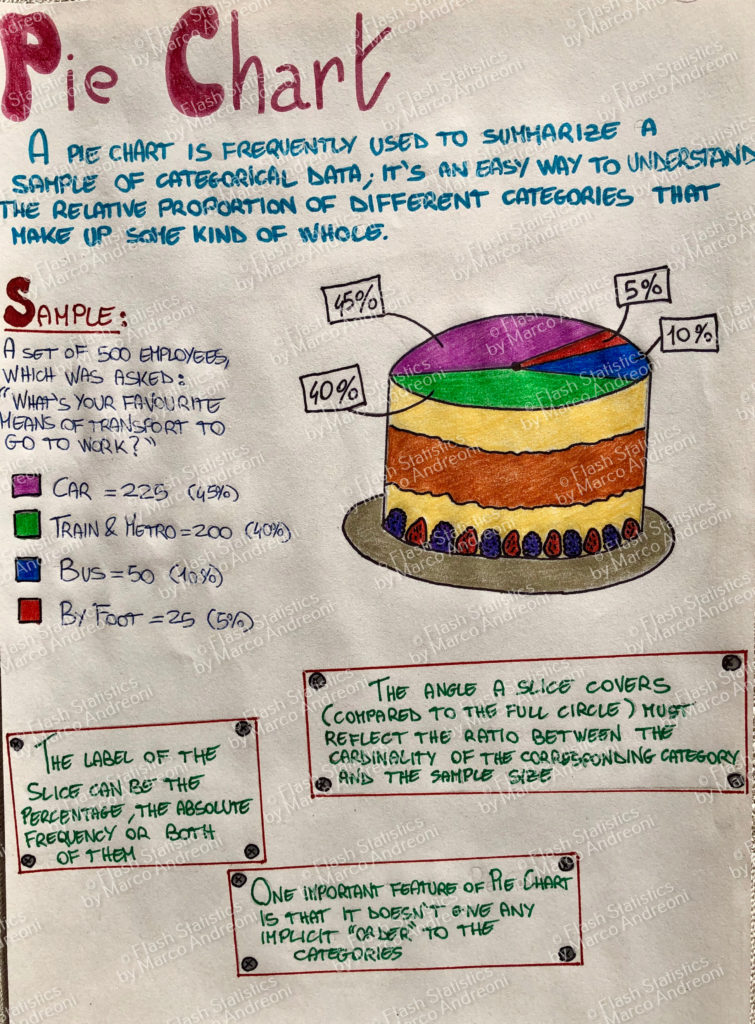 Pie Chart
A PIE CHART IS FREQUENTLY USED TO SUMMARIZE A
SAMPLE OF CATEGORICAL DATA; IT'S AN EASY WAY TO UNDERSTAND
THE RELATIVE PROPORTION OF DIFFERENT CATEGORIES THAT
MAKE UP SOME KIND OF WHOLE.
SAMPLE:
A SET OF 500 EMPLOYEES,
WHICH WAS ASKED:
"WHAT'S YOUR FAVOURITE
MEANS OF TRANSPORT TO
GO TO WORK?"
CAR = 225 (45%)
TRAIN & METRO = 200 (40%)
BUS = 50 (10%)
BY FOOT = 25 (5%)
45%
5%
10%
40%
THE ANGLE A SLICE COVERS
(COMPARED TO THE FULL CIRCLE) MUST
REFLECT THE RATIO BETWEEN THE
CARDINALITY OF THE CORRESPONDING CATEGORY
AND THE SAMPLE SIZE
THE LABEL OF THE
SLICE CAN BE THE
PERCENTAGE, THE ABSOLUTE
FREQUENCY OR BOTH
OF THEM
ONE IMPORTANT FEATURE OF PIE CHART
IS THAT IT DOESN'T GIVE ANY
IMPLICIT "ORDER" TO THE
CATEGORIES
© Flash Statistics
by Marco Andreoni